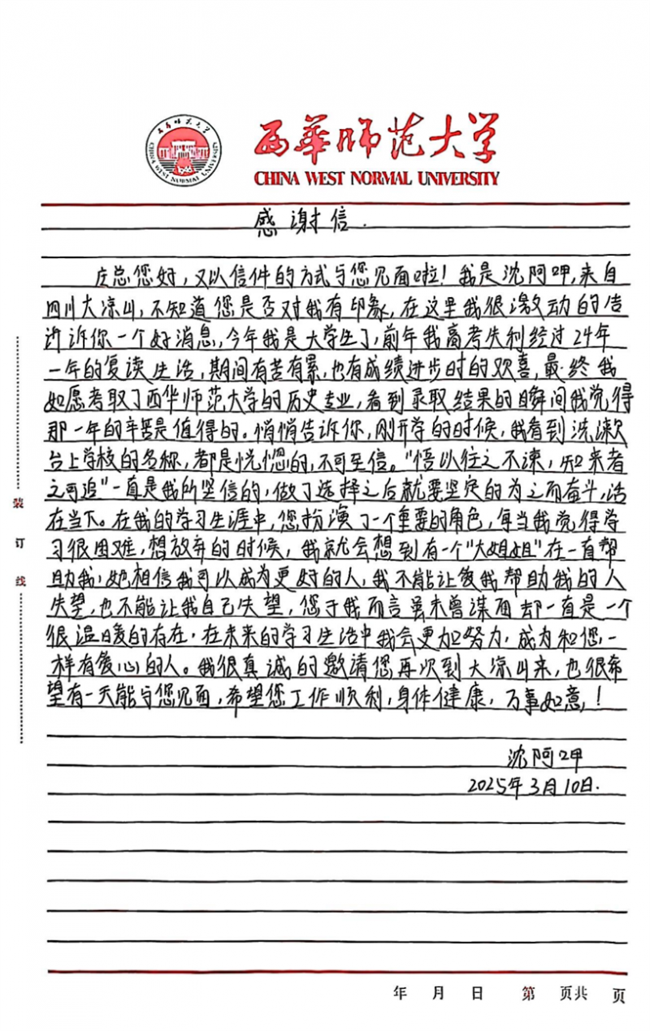 西华师范大学
CHINA WEST NORMAL UNIVERSITY
感谢信.
庄总您好,又以信件的方式与您见面啦!我是沈阿呷,来自
四川大凉山,不知道您是否对我有印象,在这里我很激动的告
诉你一个好消息,今年我是大学生了,前年我高考失利经过24年
一年的复读生活,期间有苦有累,也有成绩进步时的欢喜,最终我
如愿考取了西华师范大学的历史专业,看到录取结果的瞬间我觉得
那一年的辛苦是值得的。悄悄告诉你,刚开学的时候,我看到洗漱
台上学校的名称,都是恍惚的,不可至信。“悟以往之不谏,知来者
之可追”一直是我所坚信的,做了选择之后就要坚定的为之而奋斗,活
在当下。在我的学习生涯中,您扮演了一个重要的角色,每当我觉得学
习很困难,想放弃的时候,我就会想到有一个“大姐姐”在一直帮
助我,她相信我可以成为更好的人,我不能让爱我帮助我的人
失望,也不能让我自己失望,您于我而言虽未曾谋面却一直是一个
很温暖的存在,在未来的学习生活中我会更加努力,成为和您一
样有爱心的人。我很真诚的邀请您再次到大凉山来,也很希
望有一天能与您见面,希望您工作顺利,身体健康,万事如意!
沈阿呷
2025年3月10日.
装订线
年 月 日 第 页共 页